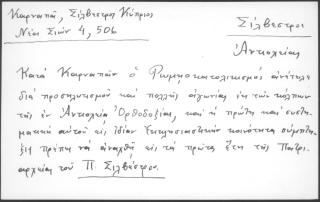 Καρναπᾶ, Σίλβεστρος Κύπριος
Νέα Σιών 4, 506
Σίλβεστρος
Ἀντιοχείας
Κατὰ Καρναπᾶν ὁ Ρωμαιοκαθολικισμὸς ἀνέτειλε
διὰ προσηλυτισμοῦ καὶ πολλῆς ἀγωνίας ἐκ τῶν κόλπων
τῆς ἐν Ἀντιοχείᾳ Ὀρθοδοξίας, καὶ ἡ πρώτη καὶ συστη-
ματικὴ αὐτοῦ εἰς ἰδίαν Ἐκκλησιαστικὴν κοινότητα σύμπη-
ξις πρέπει νὰ ἀναχθῇ εἰς τὰ πρῶτα ἔτη τῆς Πατρι-
αρχείας τοῦ Π. Σιλβέστρου.